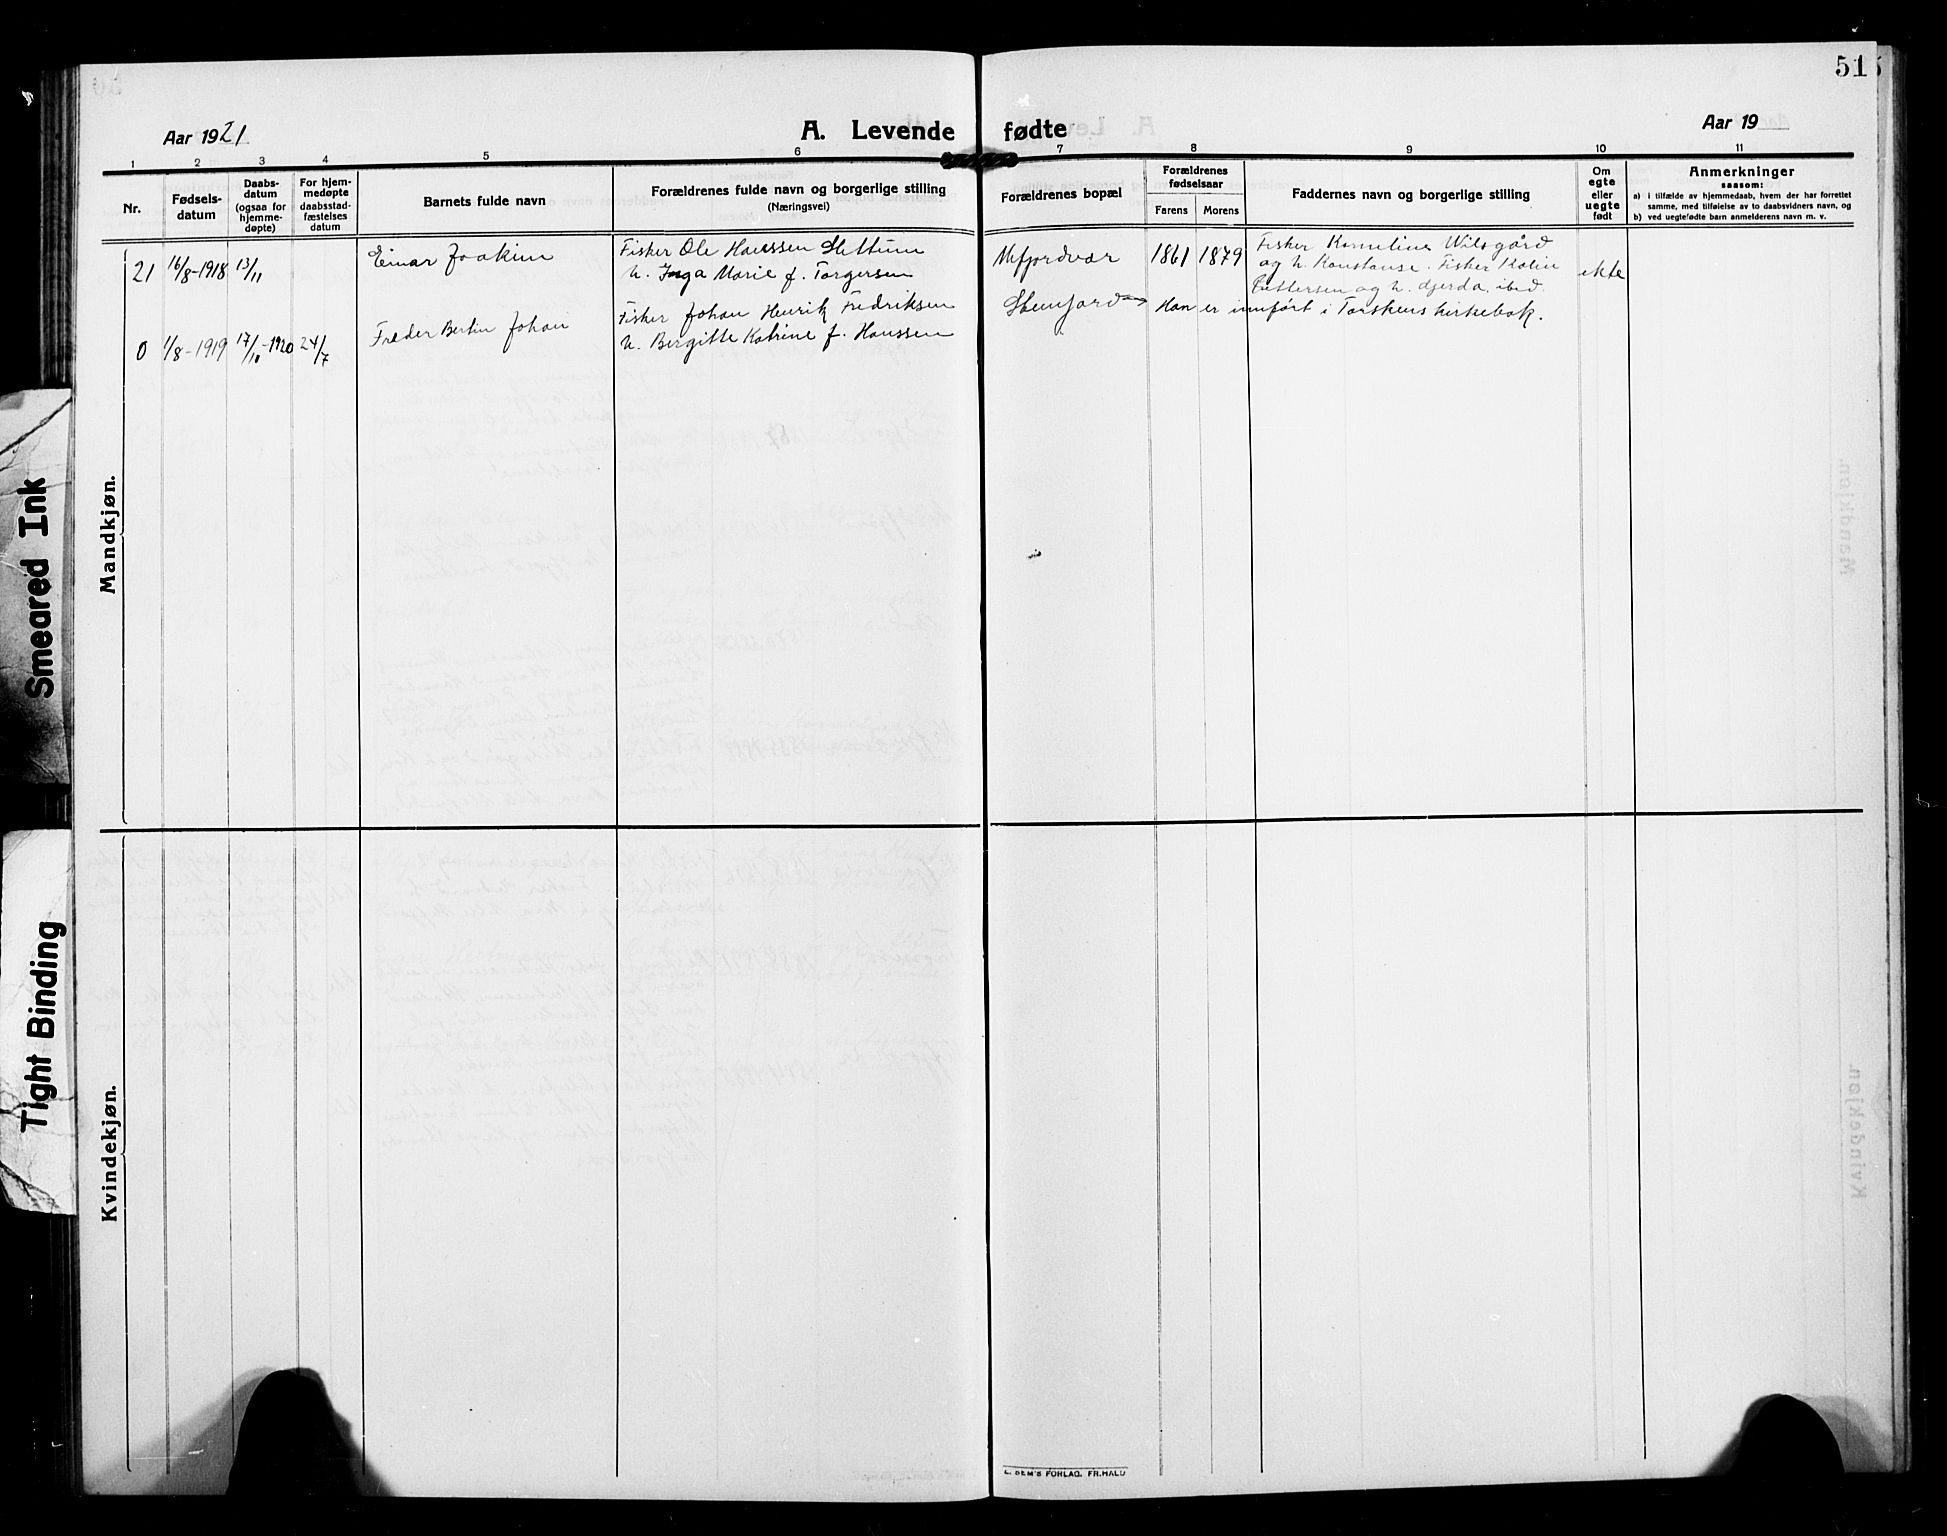 51
Aar 1921
A. Levende fødte
Aar 19
1 2 3 4 5 6 7 8 9 10 11
Nr.
Fødsels-
datum
Daabs-
datum
(ogsaa for
hjemme-
døpte)
For hjem-
medøpte
daabsstad-
fæstelses
datum
Barnets fulde navn
Forældrenes fulde navn og borgerlige stilling
(Næringsvei)
Forældrenes bopæl
Forældrenes
fødselsaar
Farens Morens
Faddernes navn og borgerlige stilling
Om
egte
eller
uegte
født
Anmerkninger
saasom:
a) i tilfælde av hjemmedaab, hvem der har forrettet
samme, med tilføielse av to daabsvidners navn, og
b) ved uegtefødte barn anmelderens navn m. v.
Mandkjøn.
21 16/8-1918 13/11
Einar Joakim
Fisker Ole Hanssen Slettum
h. Inga Marie f. Torgersen
Mefjordvær
1861 1879
Fisker Kornelius Wilsgård
og h. Konstanse. Fisker Kolin
Pettersen og h. Gjerda, ibid.
ekte
0 1/8-1919 17/10-1920 24/7
Freder Bertin Johan
Fisker Johan Henrik Fredriksen
h. Bergitte Katrine f. Hanssen
Han er innført i Torskens kirkebok.
Kvindekjøn.
SEM'S FORLAG. FR.HALD
Smeared Ink
Tight Binding